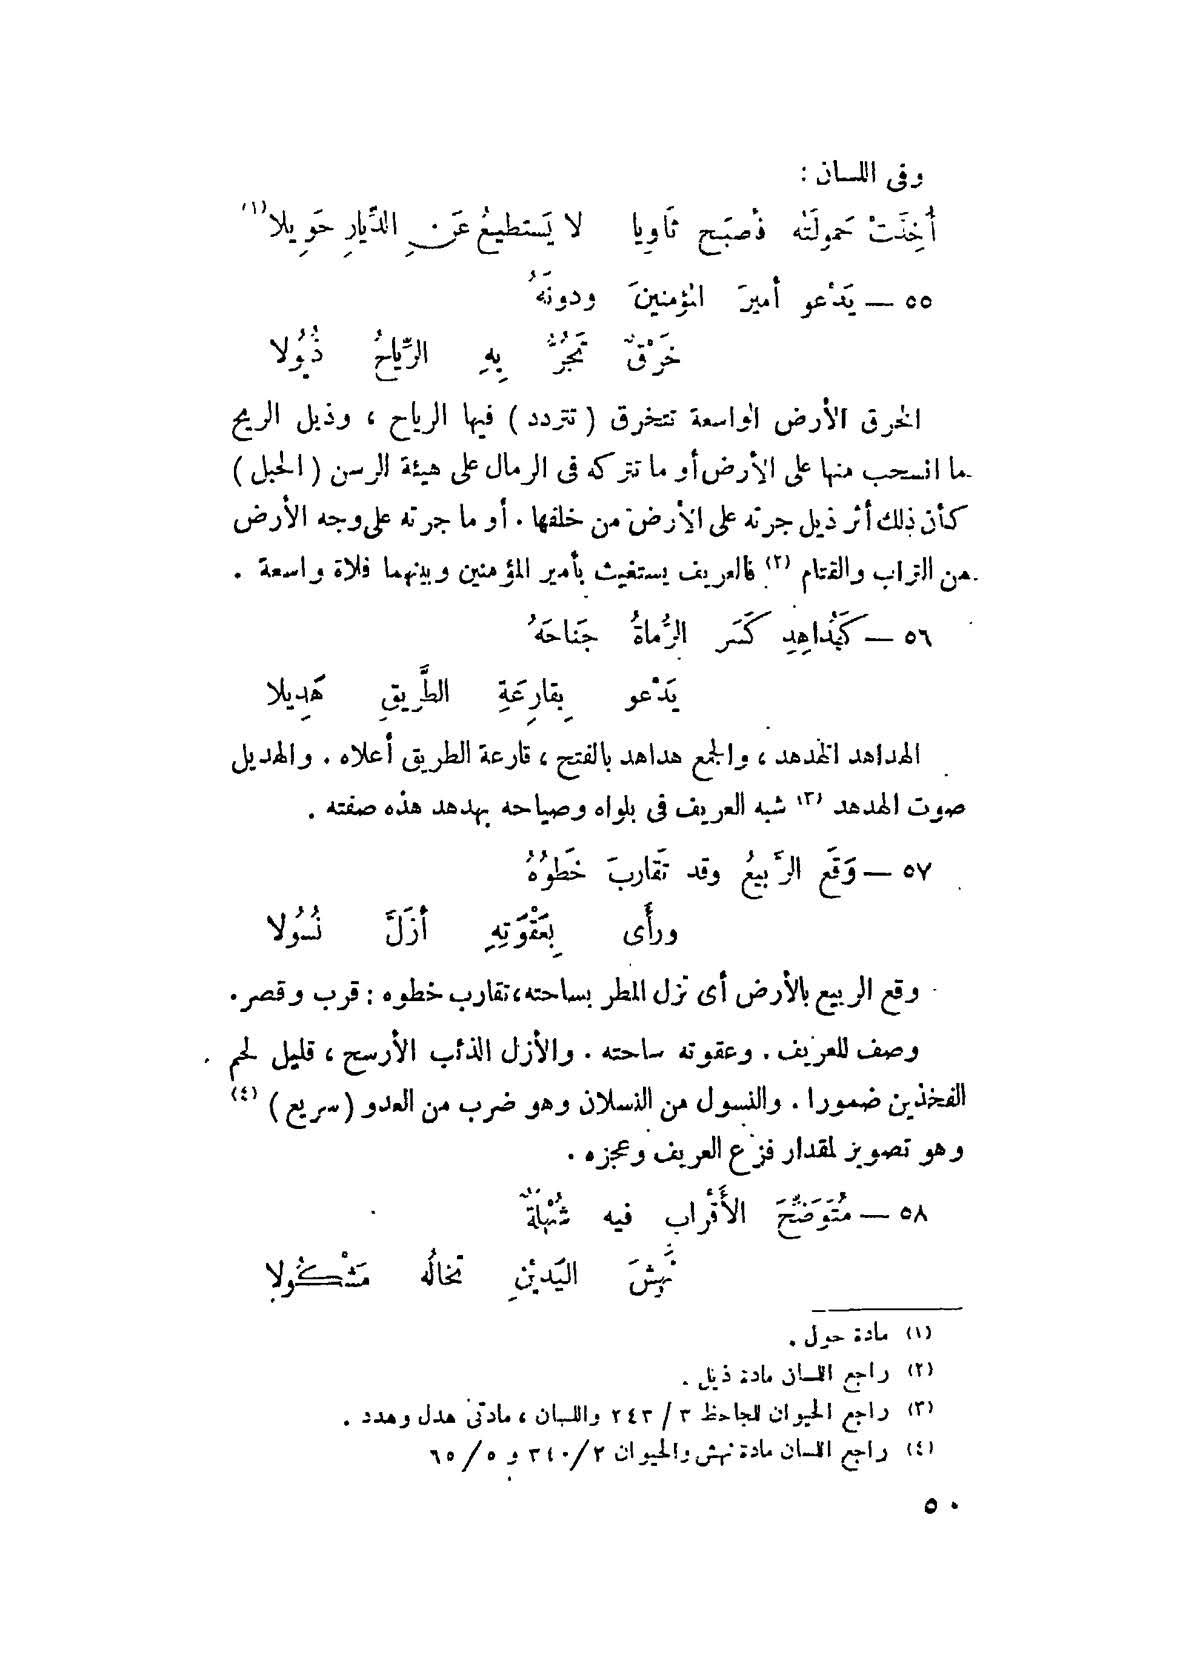 وفى اللسان :
أُخِذَتْ حَمولَتُه فأصبَح ثَاوِيا لا يَستطيعُ عَنِ الدِّيارِ حَوِيلا (١)
٥٥ — يَدْعو أميرَ المؤمنينَ ودونَهُ
خَرْقٌ تَجُرُّ بِهِ الرِّياحُ ذُيُولا
الخرق الأرض الواسعة تتخرق ( تتردد ) فيها الرياح ، وذيل الريح
ما انسحب منها على الأرض أو ما تتركه فى الرمال على هيئة الرسن ( الحبل )
كأن ذلك أثر ذيل جرته على الأرض من خلفها . أو ما جرته على وجه الأرض
من التراب والقتام (٢) فالعريف يستغيث بأمير المؤمنين وبينهما فلاة واسعة .
٥٦ — كَهُداهِدٍ كَسَر الرُّماةُ جَناحَهُ
يَدْعو بِقارِعَةِ الطَّرِيقِ هَدِيلا
الهداهد الهدهد ، والجمع هداهد بالفتح ، قارعة الطريق أعلاه . والهديل
صوت الهدهد (٣) شبه العريف فى بلواه وصياحه بهدهد هذه صفته .
٥٧ — وَقَع الرَّبيعُ وقد تَقَاربَ خَطوُهُ
ورأَى بِعَقْوَتِهِ أزَلَّ نُسُولا
وقع الربيع بالأرض أى نزل المطر بساحته، تقارب خطوه : قرب وقصر .
وصف للعريف . وعقوته ساحته . والأزل الذئب الأرسح ، قليل لحم
الفخذين ضمورا . والنسول من النسلان وهو ضرب من العدو ( سريع ) (٤)
وهو تصوير لمقدار فزع العريف وعجزه .
٥٨ — مُتَوَضِّحَ الأَقْرابِ فيه شُهْلَةٌ
نَهِشَ اليَديْنِ تخالُه مَشْكُولا
(١) مادة حول .
(٢) راجع اللسان مادة ذيل .
(٣) راجع الحيوان للجاحظ ٣ / ٢٤٣ واللسان ، مادتى هدل وهدد .
(٤) راجع اللسان مادة نهش والحيوان ٢ / ٣٤٠ و ٥ / ٦٥
٥٠